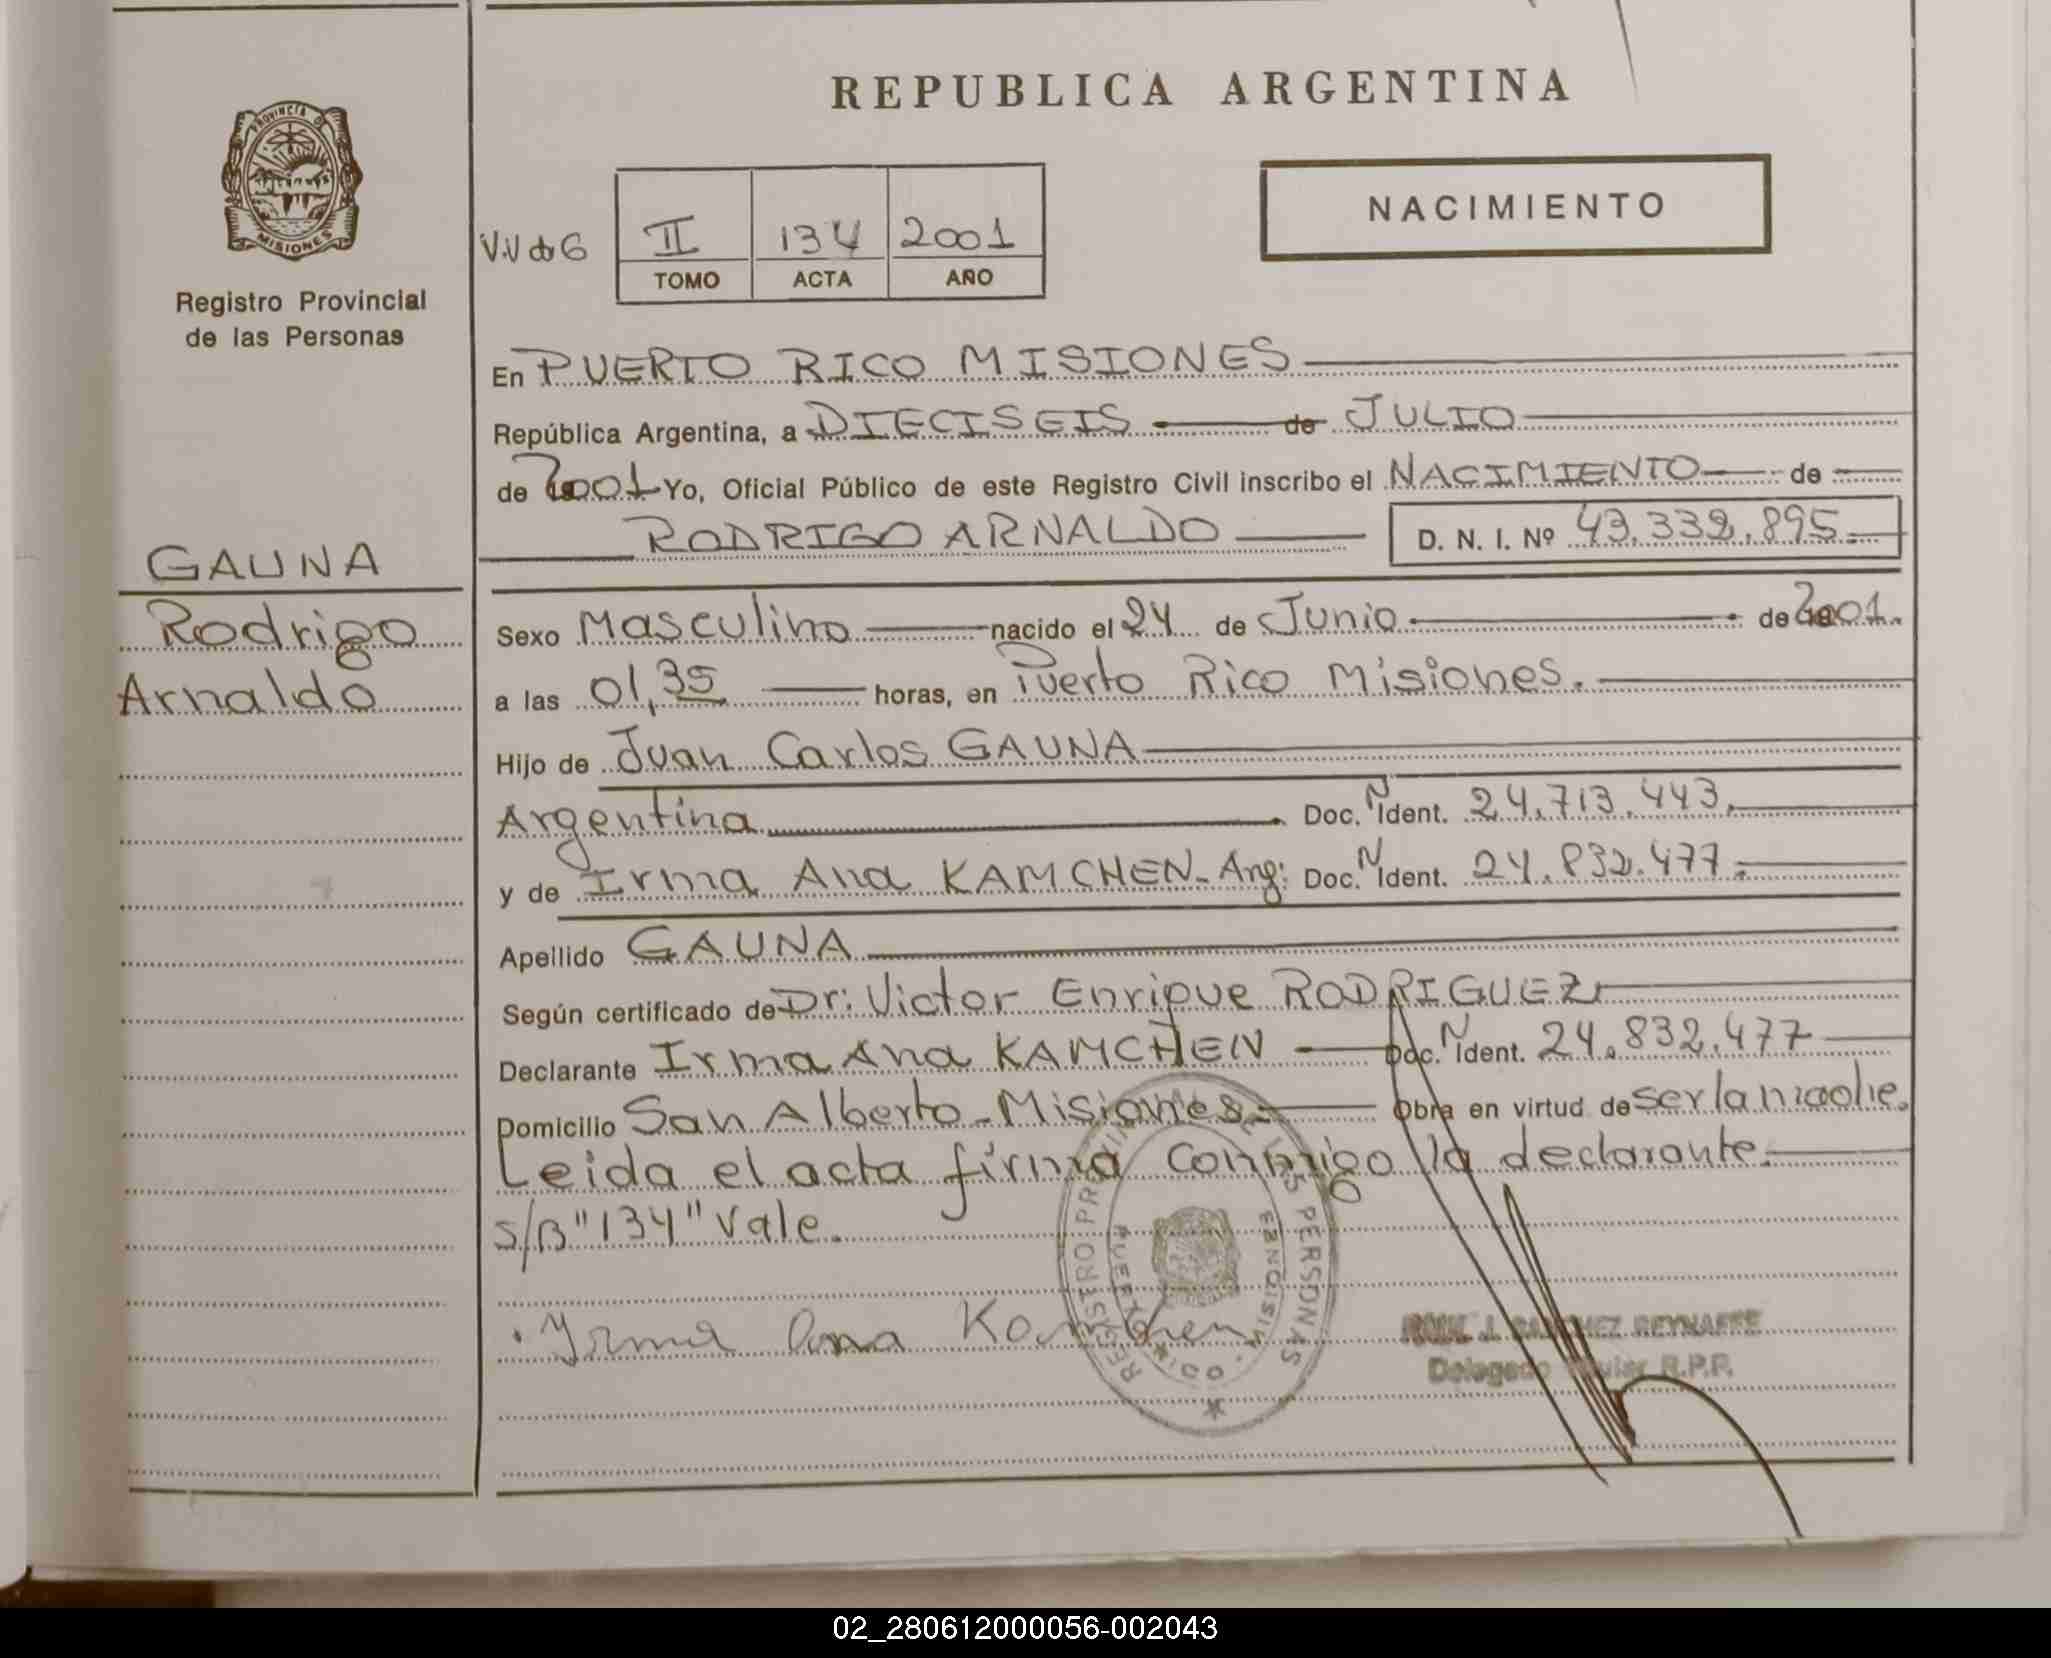 REPUBLICA ARGENTINA
PROVINCIA D
MISIONES
Registro Provincial
de las Personas
NACIMIENTO
II 134 2001
TOMO ACTA AÑO
En PUERTO RICO MISIONES
República Argentina, a DIECISEIS de JULIO
de 2001 Yo, Oficial Público de este Registro Civil inscribo el NACIMIENTO de
RODRIGO ARNALDO D. N. I. Nº 43.332.895
GAUNA
Rodrigo
Arnaldo
Sexo Masculino nacido el 24 de Junio de 2001.
a las 01,35 horas, en Puerto Rico Misiones.
Hijo de Juan Carlos GAUNA
Argentina Doc. N Ident. 24.713.443.
y de Irma Ana KAMCHEN- Arg: Doc. N Ident. 24.832.477
Apellido GAUNA
Según certificado de Dr: Victor Enrique RODRIGUEZ
Declarante Irma Ana KAMCHEN Doc. N Ident. 24.832.477
Domicilio San Alberto - Misiones Obra en virtud de ser la madre.
Leida el acta firma conmigo la declarante.
S/B "134" Vale.
Irma Ana Kamchen
REGISTRO PROVINCIAL DE LAS PERSONAS
J. SANCHEZ REYNAFFE
Delegado Titular R.P.P.
02_280612000056-002043